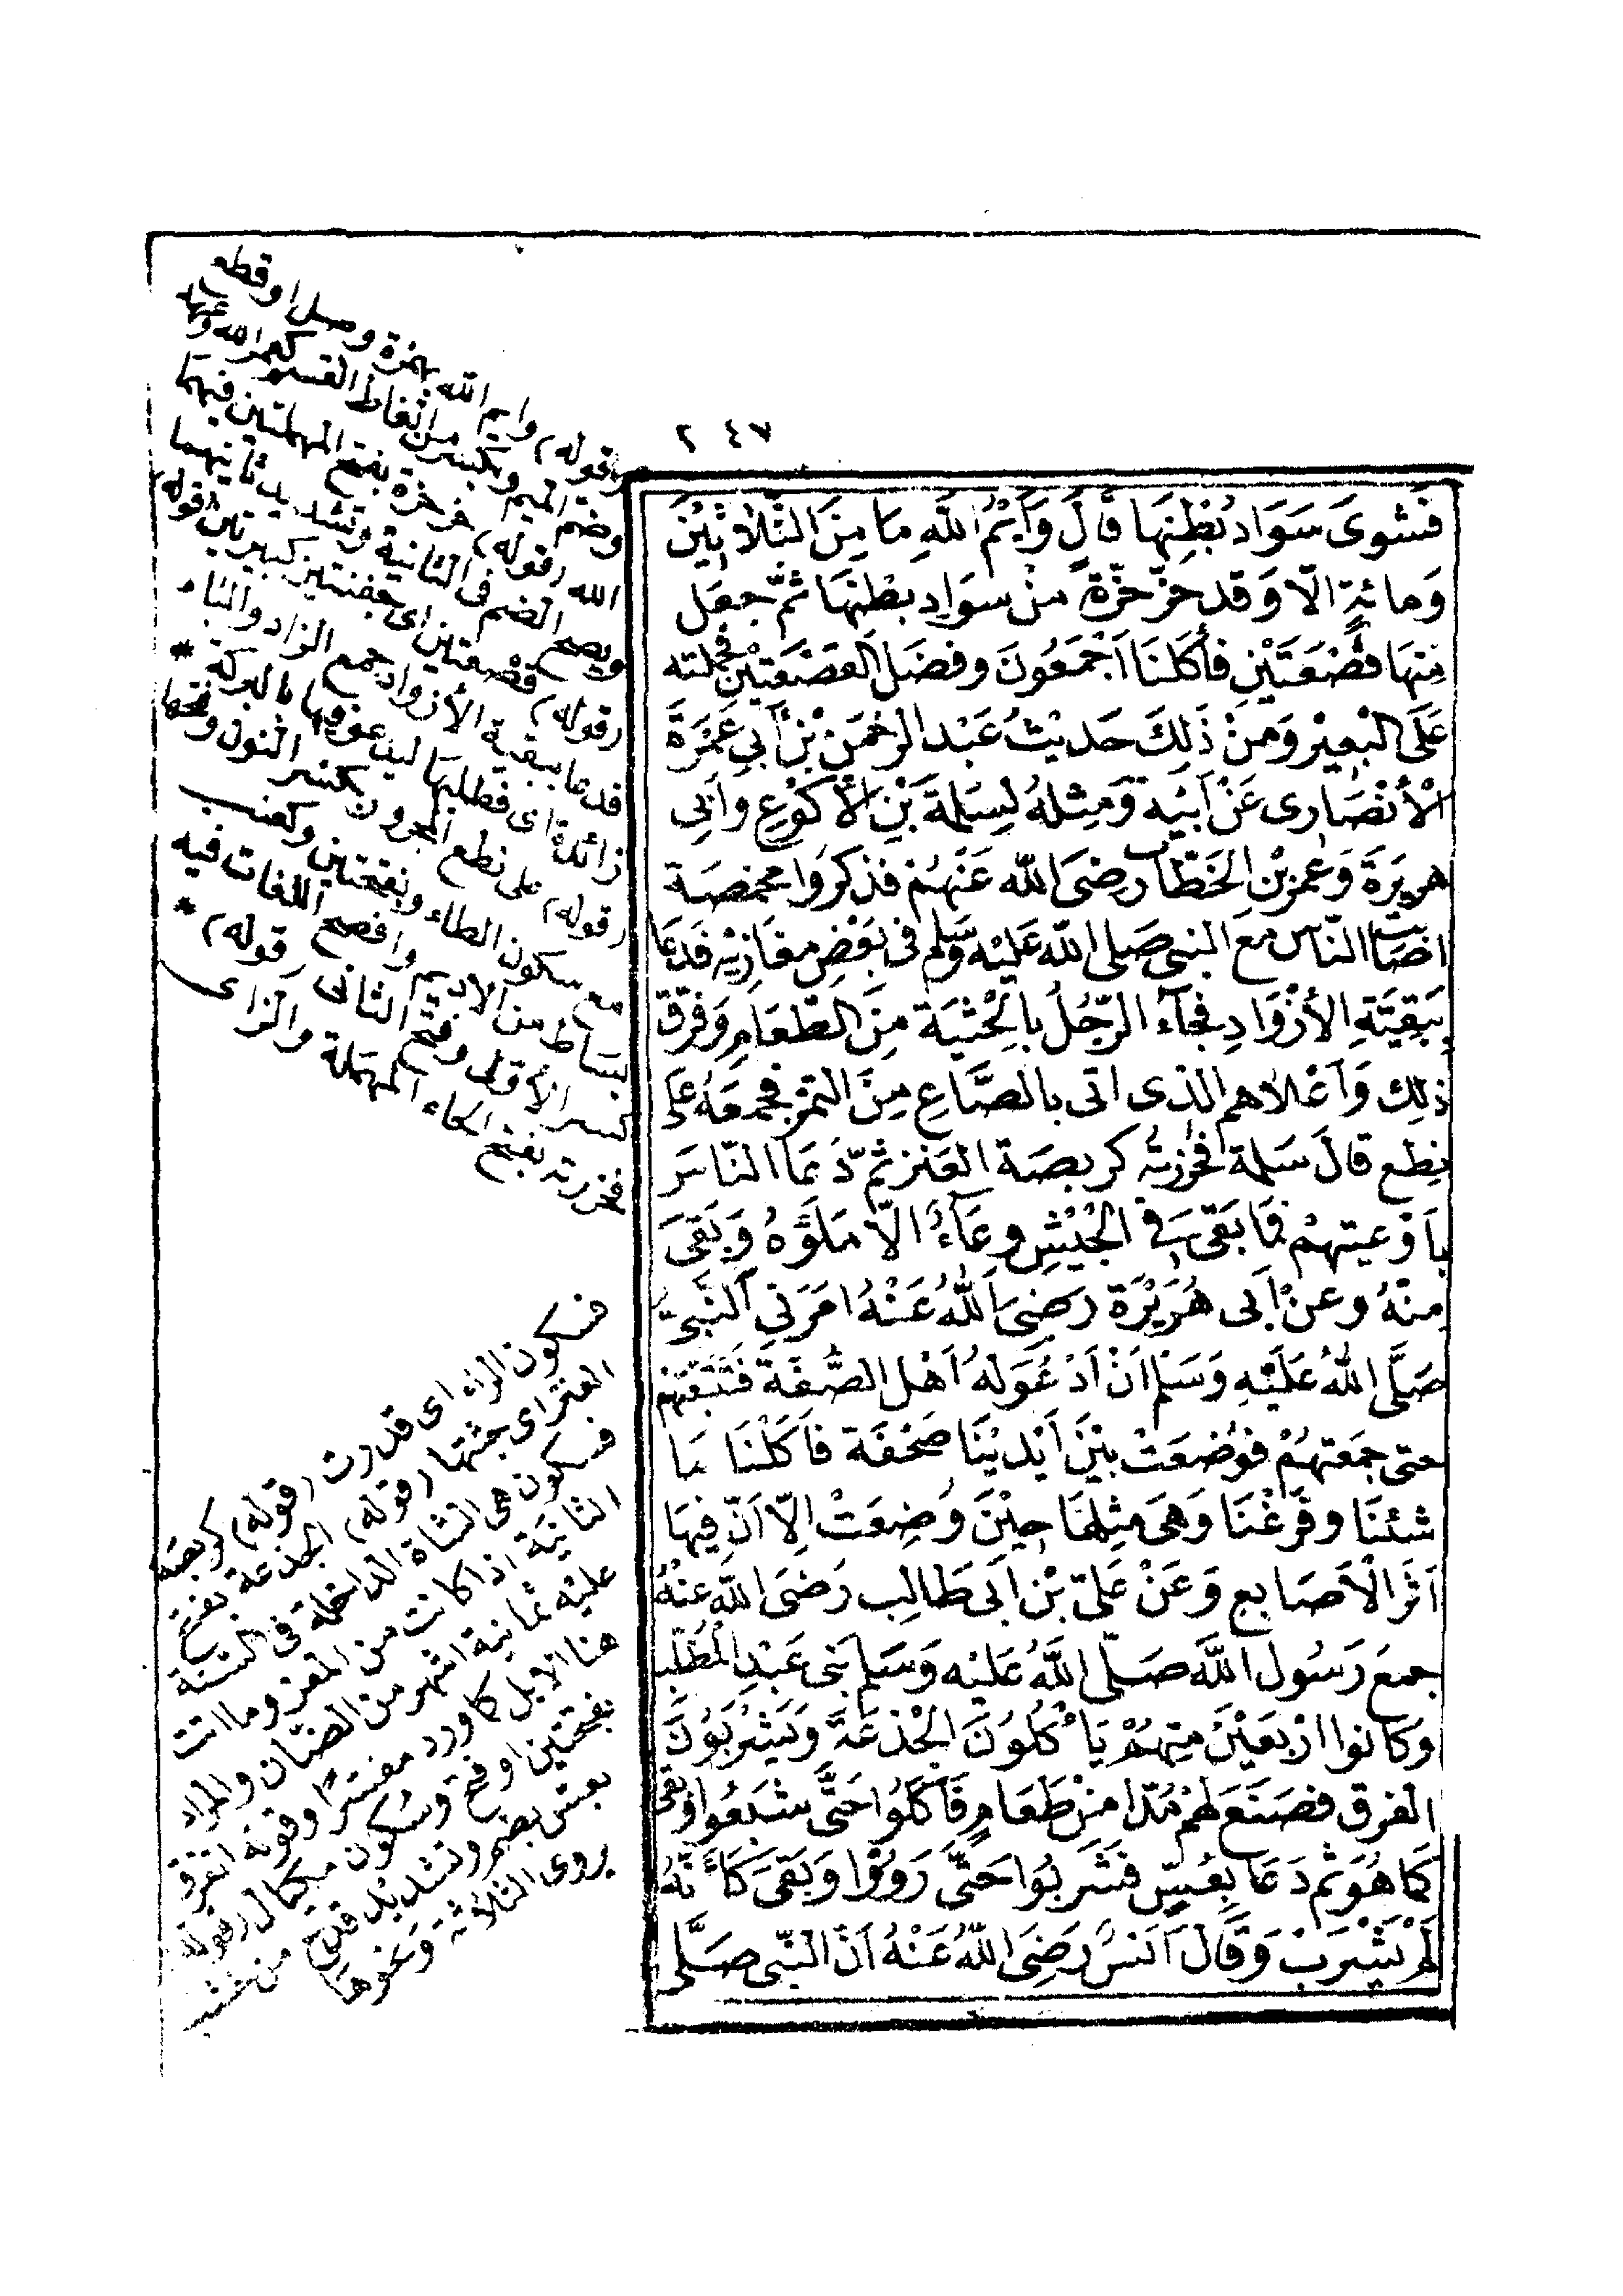 ٢٤٧
فَشوىَ سَوَادُ بُطْنِهَا قَالَ وَاَيْمُ اللّٰهِ مَا مِنَ الثَّلَاثِيْنَ
وَمائةٍ الّا وَقد حزّ حُزّةً مِنْ سوَادِ بطْنِهَا ثمّ جعَل
مِنهَا قصْعَتَيْنِ فأكَلنَا اَجْمَعُونَ وفضَل القصْعَتَيْنِ فحملته
عَلَى البْعِيْرِ وَمِنْ ذَلِكَ حَديْثُ عَبْد الرحْمَنِ بْنِ اَبِى عَمْرَةَ
الْأنْصَارى عَنْ اَبيْهِ وَمِثلهُ لِسَلمةَ بْنِ الْأكْوَعِ وأَبِى
هريرَةَ وَعُمرَ بْنِ الخَطّاب رضىَ اللّٰه عَنْهُمْ فذكَرُوا مخمصَة
اصَابت النّاس مَع النبى صَلى اللّٰه عَليْه وسَلم فى بَعْضِ مغَازيْهِ فَدعَا
بِبَقيَّةِ الأزْوَادِ فجَاءَ الرّجُلُ بالحْثيَة مِنَ الطّعَامِ وَفوْقَ
ذلِكَ وَاَعْلاهم الذى اتى بالصَّاعِ مِنَ التمْرِ فجمعَهُ عَلى
نِطَع قالَ سَلمة فحزرتهُ كربضَة العَنز ثمّ دَعَا النّاسَ
بأوْعيتهِمْ فمَا بَقىَ فى الجْيْشِ وعَاءٌ الّا مَلَؤُهُ وَبَقىَ
مِنْهُ وعَنْ اَبى هُرَيْرَة رَضىَ اللّٰهُ عَنْهُ امَرَنى النَّبىُّ
صَلَّى اللّٰهُ عَلَيْهِ وَسَلم اَنْ اَدْعُوَلهُ اَهْل الصُّفَة فَتَتَبَّعْتهُمْ
حتى جمَعْتهُمْ فوُضعَتْ بيْنَ اَيْديْنَا صَحْفَة فأكَلْنَا مَا
شئنَا وفَرَغْنَا وَهىَ مثِلهَا حِيْنَ وُضِعَتْ اِلّا اَنّ فيهَا
اَثَرَ الْأصَابع وَعَنْ عَلىّ بْن اَبى طَالِب رَضىَ اللّٰهُ عَنْهُ
جمعَ رَسُول اللّٰه صَلّى اللّٰهُ عَليْه وَسَلم بَنى عَبْدِ المْطَّلب
وَكانوا ارْبعَيْنَ مِنهُمْ يَأْكُلُونَ الجْذعَة وَيَشْرَبُونَ
الفرق فصَنَعَ لهُمْ مُدّا مِنْ طَعَامٍ فَأكَلُوا حَتَّى شَبعُوا وبَقى
كَمَا هُوَ ثم دَعَا بِعُسٍّ فَشَربُوا حَتّى رَوُوْا وَبَقىَ كَأَنَّهُ
لَمْ يشْرَبْ وَقَالَ اَنَسٌ رَضِىَ اللّٰهُ عَنْهُ اَنّ النّبى صَلَّى
(قوله) وايم الله بهمزة وصل او قطع
وضم الميم وبكسر من الفاظ القسم كعمر الله وعهد
الله (قوله) حز حزة بفتح المهملتين فيهما
ويصح الضم فى الثانية وتشديد ثانيهما
(قوله) قصعتين اى جفنتين كبيرتين (قوله)
فدعا ببقية الأزواد جمع الزاد والباء
زائدة اى فطلبها ليدعو فيها بالبركة *
(قوله) على نطع المجرون بكسر النون وفتحها
مع سكون الطاء وبفتحتين وكعنب
بساط من الاديم وافصح اللغات فيه
كسر الأول وفتح الثانى (قوله) *
فحزرته بفتح الحاء المهملة والزاى
فسكون الراء اى قدرت (قوله) كربضة
العنز اى جثتها (قوله) الجذعة بفتح
فسكون هى الشاة الداخلة فى السّنة
الثانية اذا كانت من المعز وما اتت
عليه ثمانية اشهر من الضان والمراد
هنا الابل كما ورد مفسّرًا وقوله الفرق
بفتحتين او فتح وسكون مكيال (قوله)
بعس بضم وتشديد قدح من خشب
يروى الثلاثة ونحوها